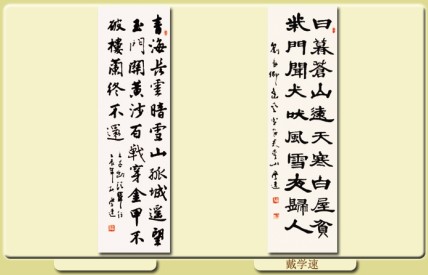 青海长雲暗雪山孤城遥望
玉門關黄沙百戰穿金甲不
破樓蘭終不還
日暮蒼山遠天寒白屋貧
柴門聞犬吠風雪夜歸人
戴学速